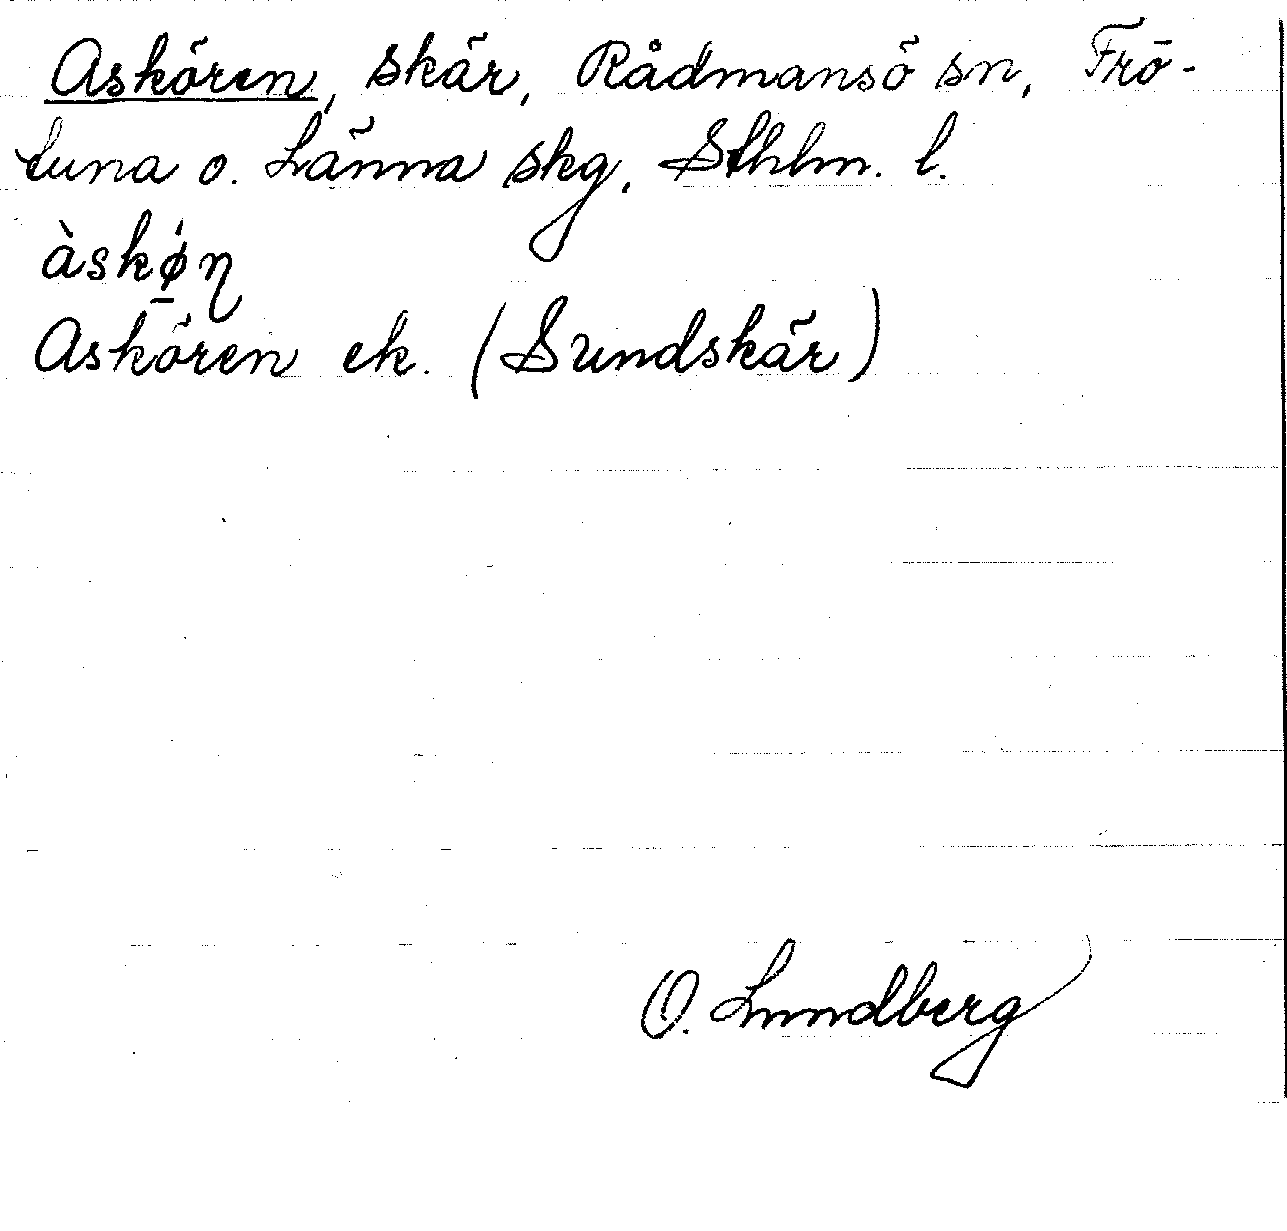 Askören, skär, Rådmansö sn, Frö-
tuna o. Länna skg, Sthlm. l.
àskǿ̠ɳ
Askören ek. (Sundskär)
O. Lundberg